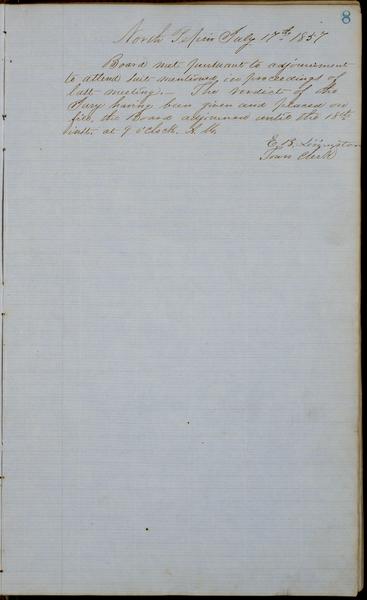 8
North Pepin July 17th 1857
Board met pursuant to adjournment
to attend suit mentioned in proceedings of
last meeting.— The verdict of the
Jury having been given and placed on
file, the Board adjourned until the 18th
inst. at 9 o'clock A. M.
E. B. Livingston
Town Clerk